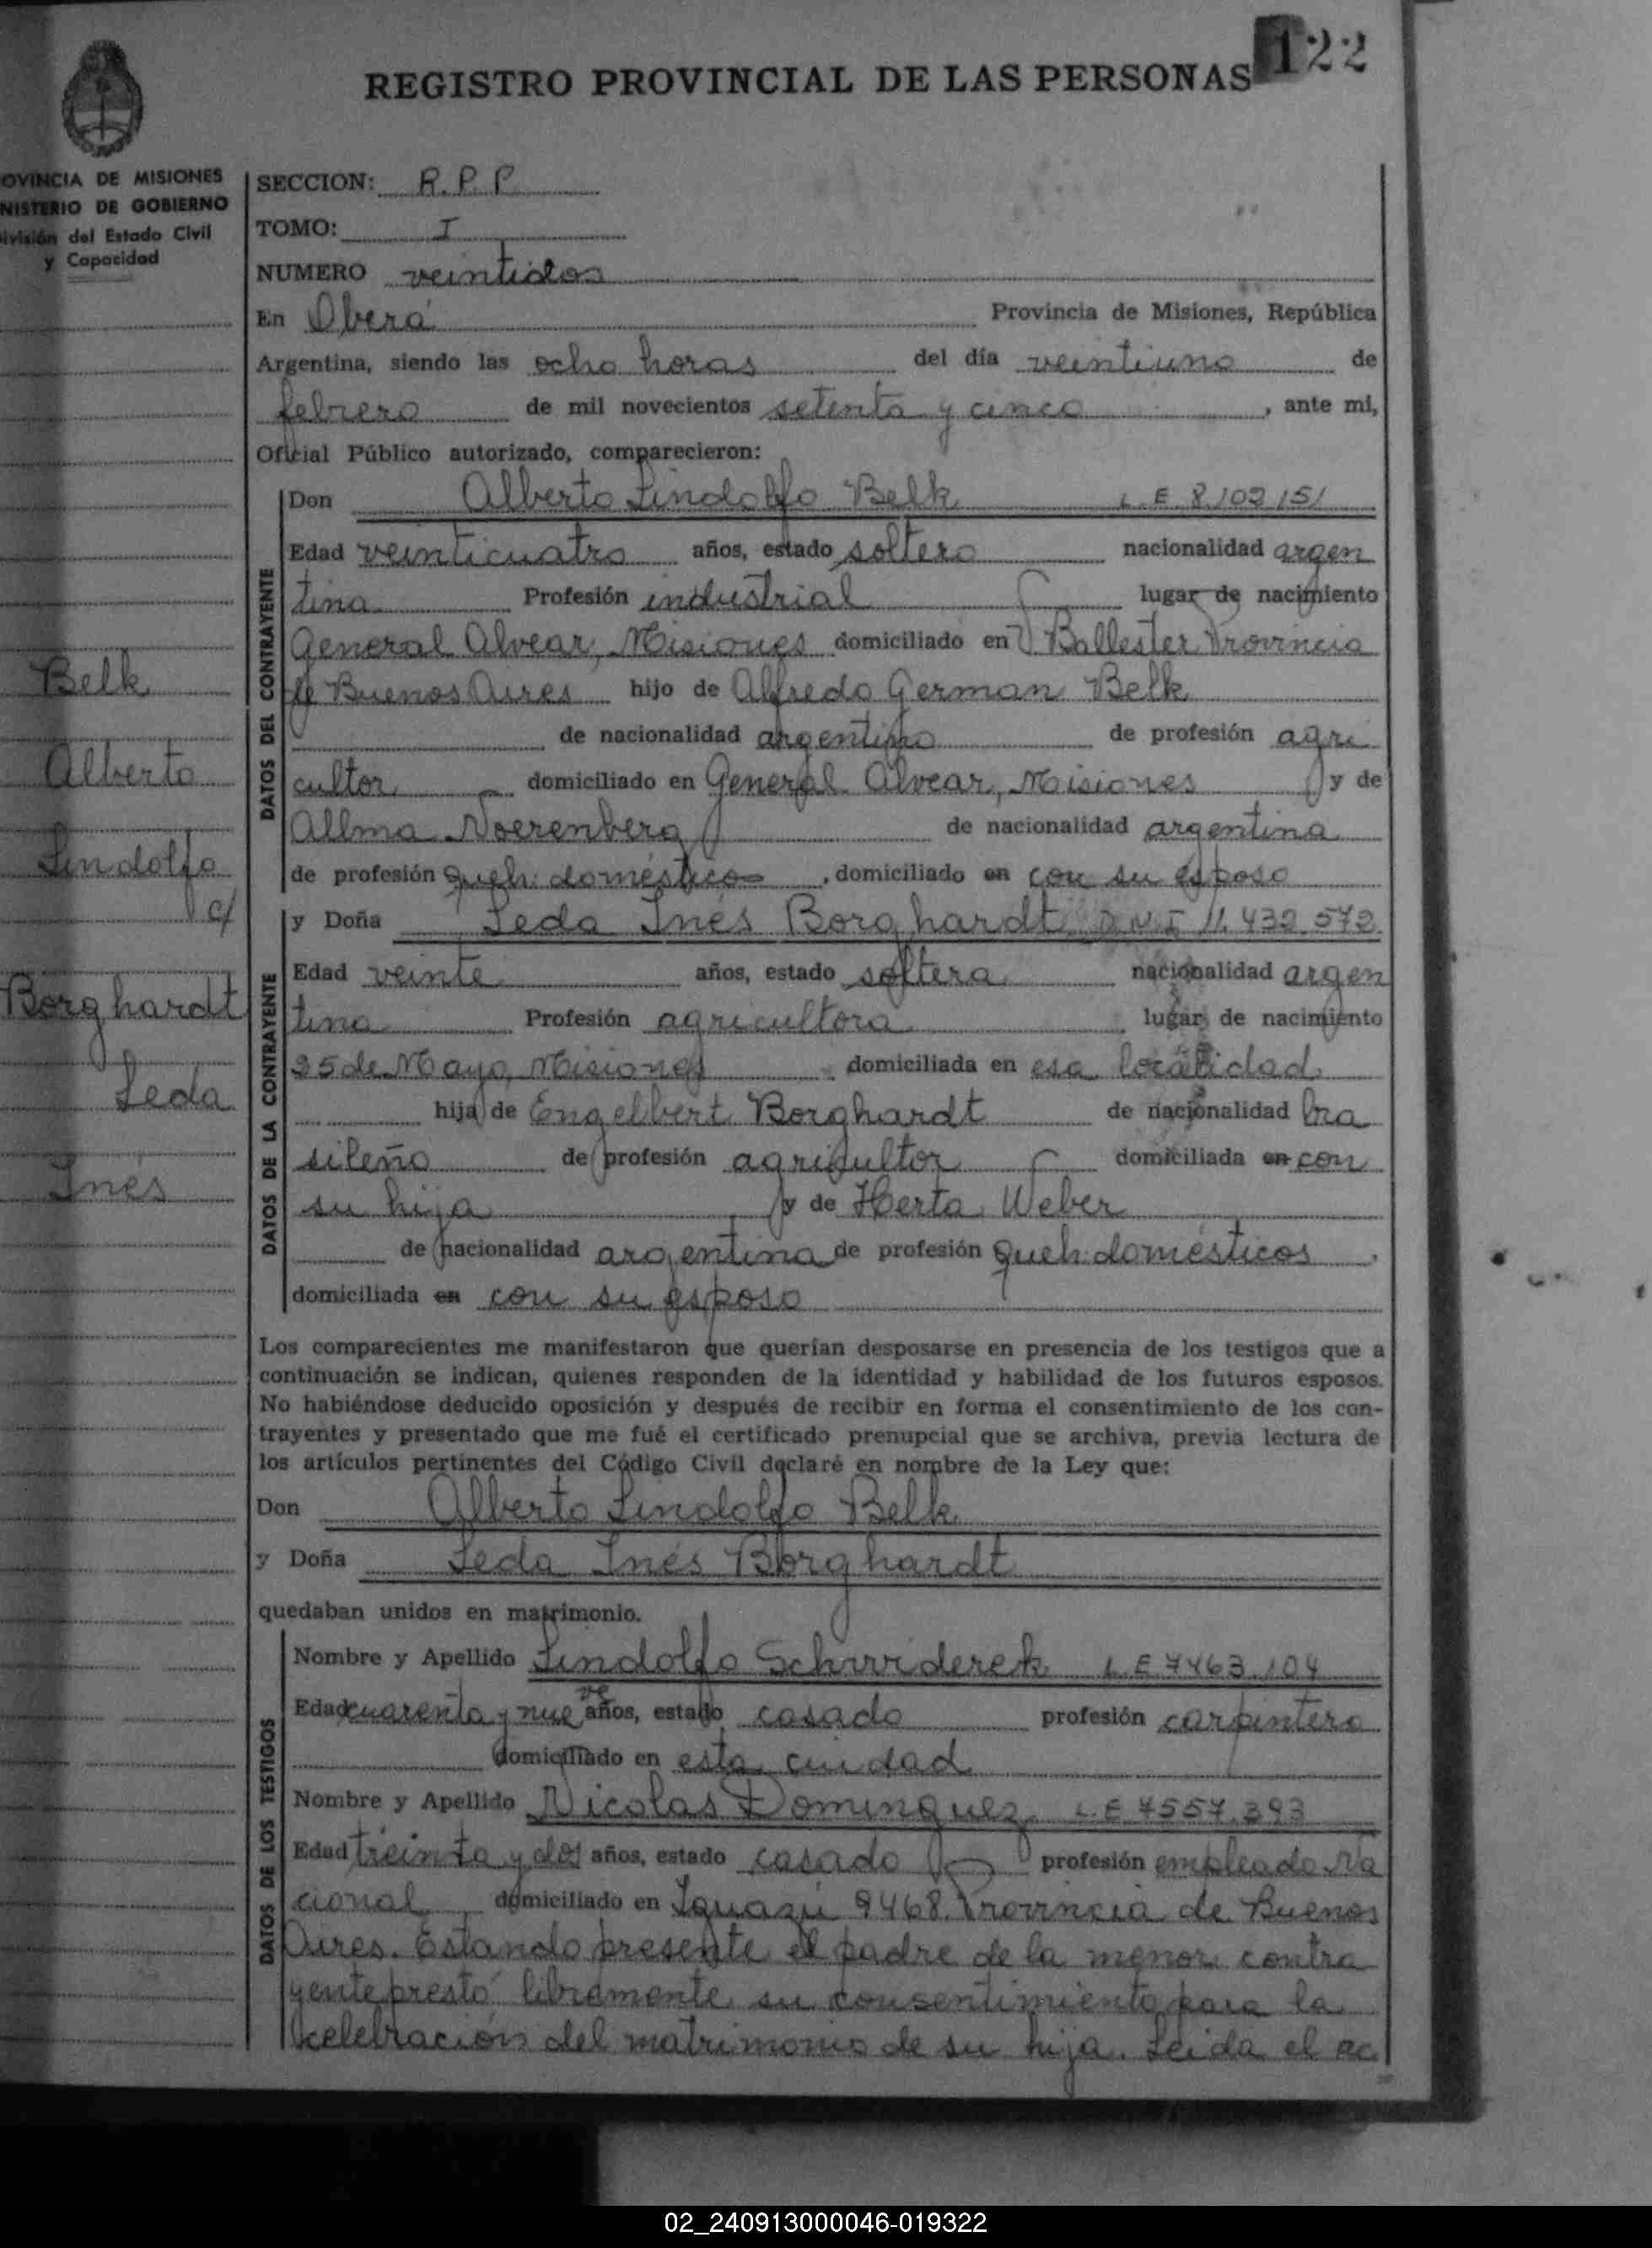 122
REGISTRO PROVINCIAL DE LAS PERSONAS
OVINCIA DE MISIONES
NISTERIO DE GOBIERNO
ivisión del Estado Civil
y Capacidad
SECCION: R.P.P
TOMO: I
NUMERO veintidos
En Oberá Provincia de Misiones, República
Argentina, siendo las ocho horas del día veintiuno de
febrero de mil novecientos setenta y cinco, ante mi,
Oficial Público autorizado, comparecieron:
DATOS DEL CONTRAYENTE
Don Alberto Lindolfo Belk L.E 8.102.151
Edad veinticuatro años, estado soltero nacionalidad argen
tina Profesión industrial lugar de nacimiento
General Alvear, Misiones domiciliado en Ballester Provincia
de Buenos Aires hijo de Alfredo German Belk
de nacionalidad argentino de profesión agri
cultor domiciliado en General Alvear, Misiones y de
Allma Noerenberg de nacionalidad argentina
de profesión queh. domésticos, domiciliado en con su esposo
Belk
Alberto
Lindolfo
c/
Borghardt
Leda
Inés
DATOS DE LA CONTRAYENTE
y Doña Leda Inés Borghardt D.N.I 11.432.572
Edad veinte años, estado soltera nacionalidad argen
tina Profesión agricultora lugar de nacimiento
25 de Mayo, Misiones domiciliada en esa localidad
hija de Engelbert Borghardt de nacionalidad bra
sileño de profesión agricultor domiciliada en con
su hija y de Herta Weber
de nacionalidad argentina de profesión queh. domésticos,
domiciliada en con su esposo
Los comparecientes me manifestaron que querían desposarse en presencia de los testigos que a
continuación se indican, quienes responden de la identidad y habilidad de los futuros esposos.
No habiéndose deducido oposición y después de recibir en forma el consentimiento de los con-
trayentes y presentado que me fué el certificado prenupcial que se archiva, previa lectura de
los artículos pertinentes del Código Civil declaré en nombre de la Ley que:
Don Alberto Lindolfo Belk
y Doña Leda Inés Borghardt
quedaban unidos en matrimonio.
DATOS DE LOS TESTIGOS
Nombre y Apellido Lindolfo L.E 7463.104
Edad cuarenta y nueve años, estado casado profesión carpintero
domiciliado en esta ciudad
Nombre y Apellido Nicolas Dominguez L.E 4557.393
Edad treinta y dos años, estado casado profesión empleado Na
cional domiciliado en Iguazú 9468. Provincia de Buenos
Aires. Estando presente el padre de la menor contra
yente prestó libremente su consentimiento para la
celebración del matrimonio de su hija. Leida el ac
02_240913000046-019322